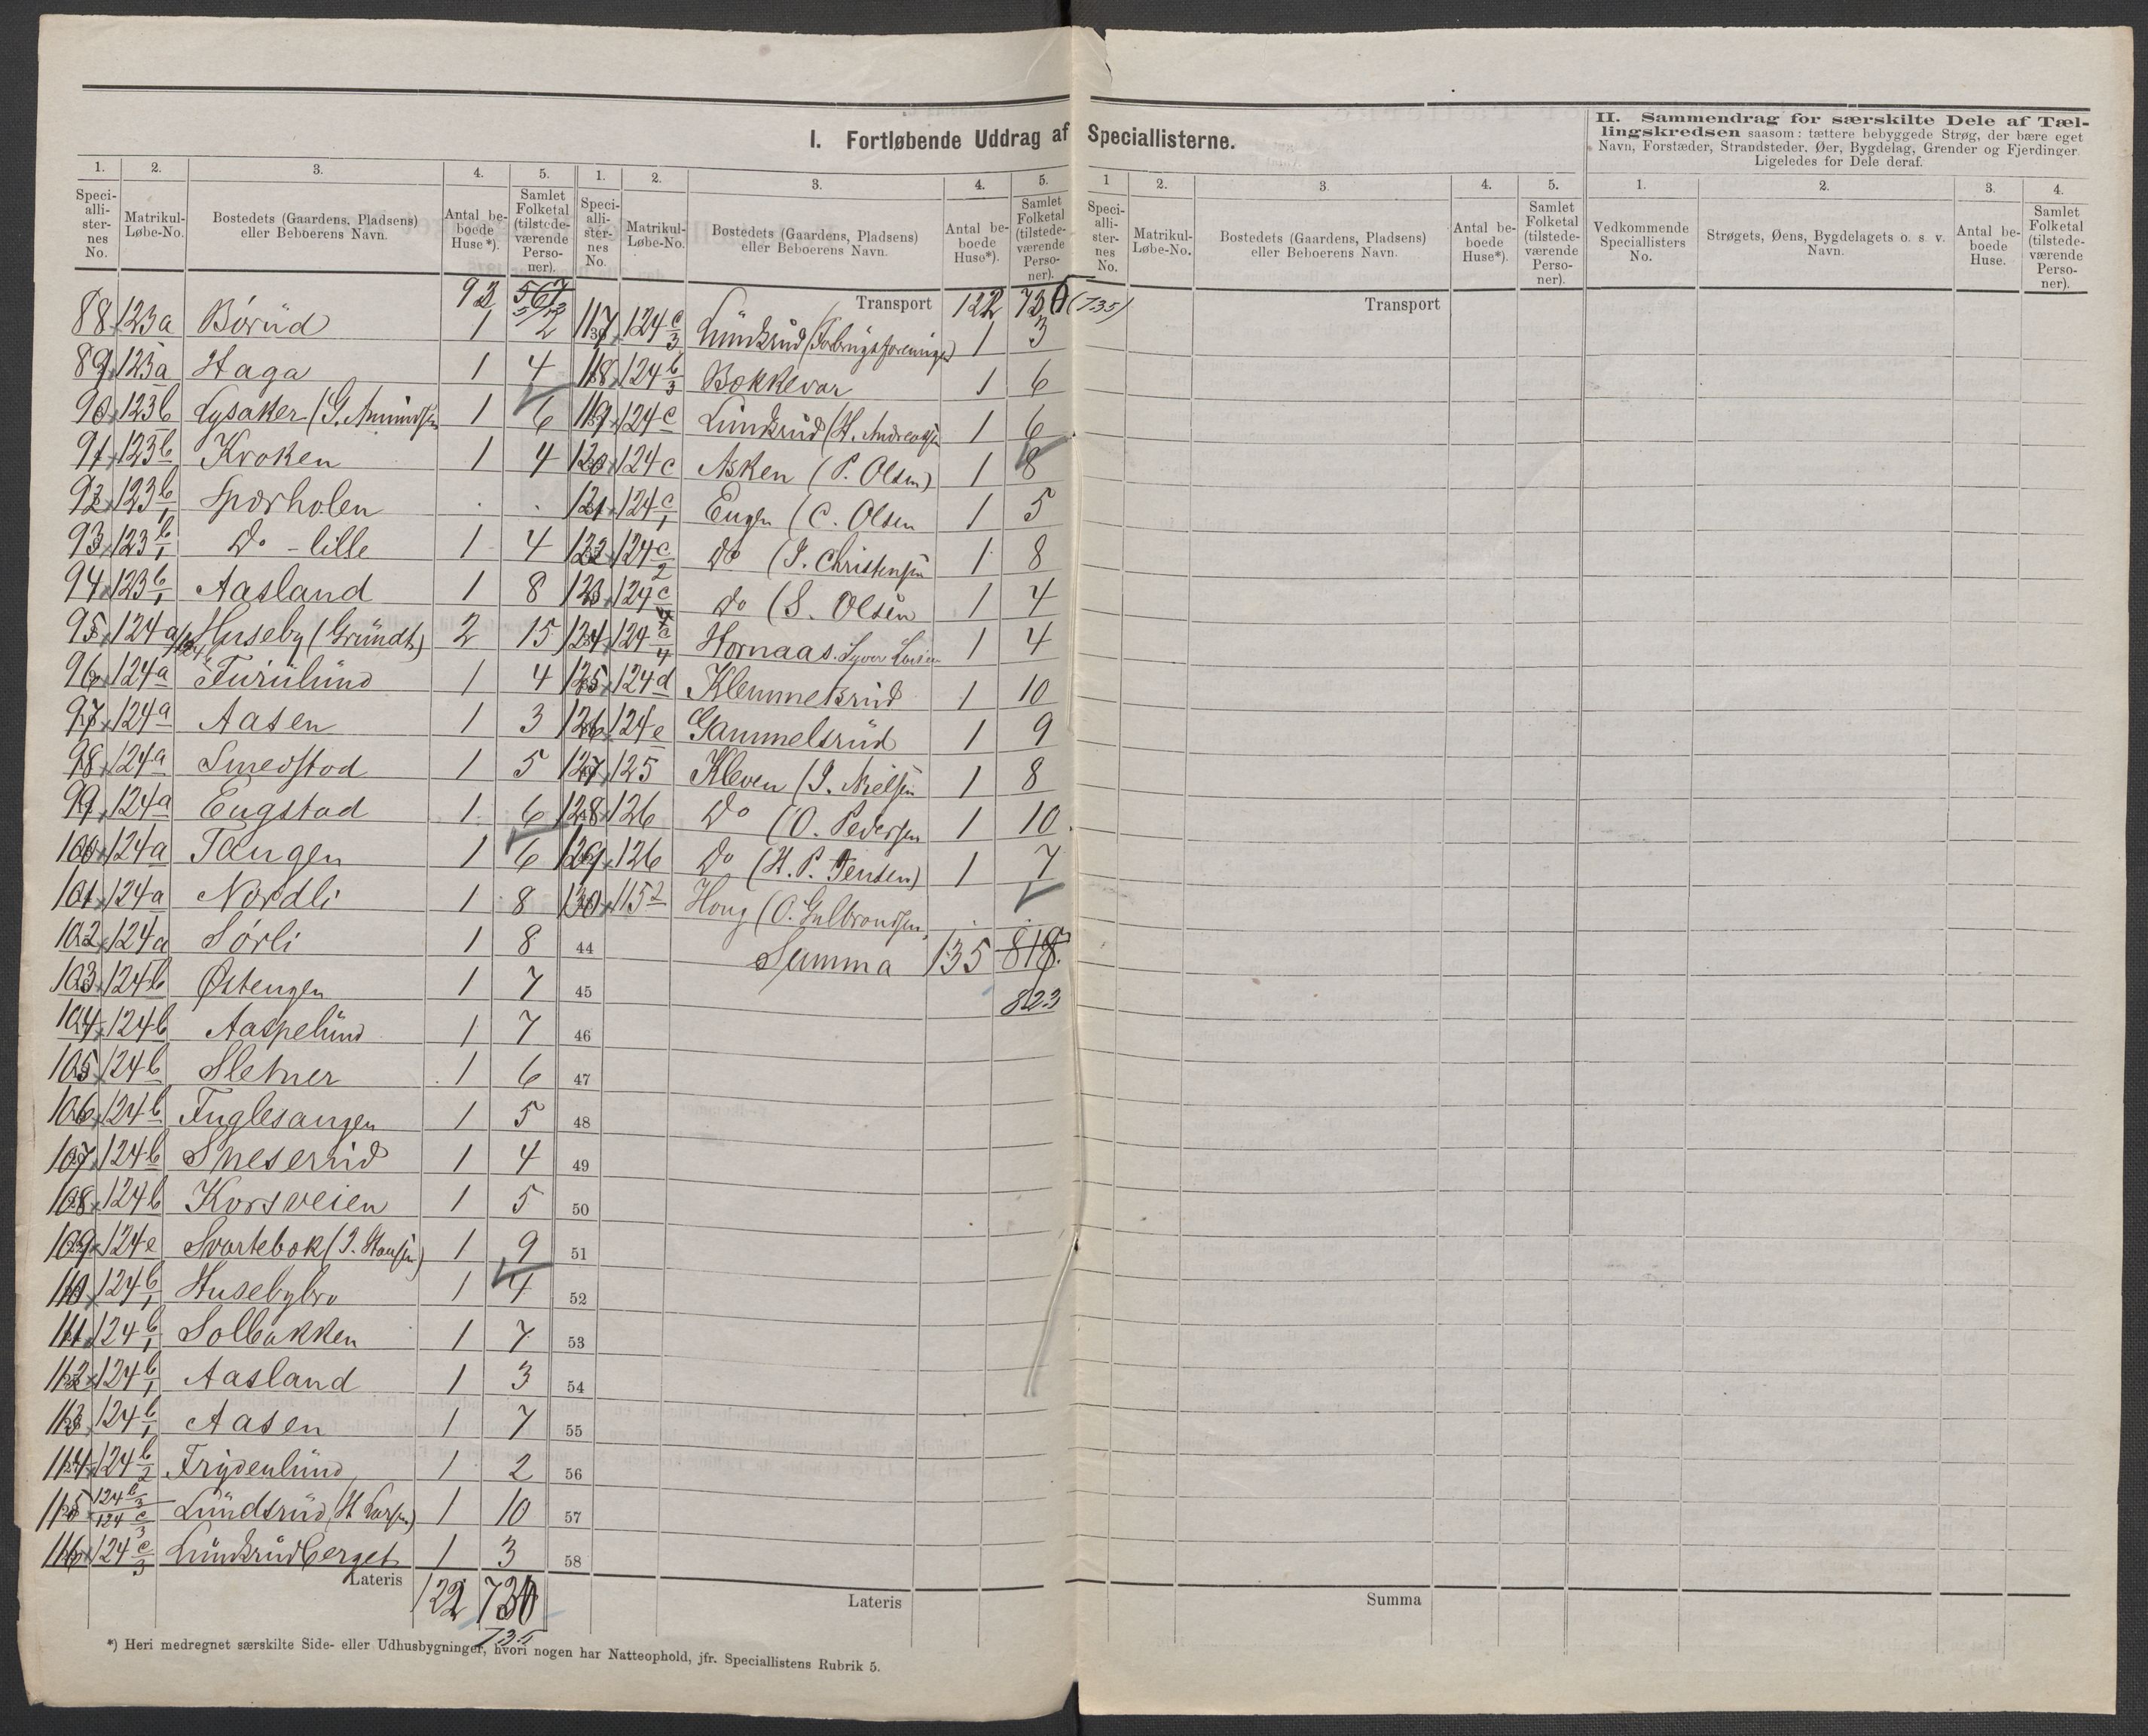 I. Fortløbende Uddrag af Speciallisterne.
II. Sammendrag for særskilte Dele af Tæl-
lingskredsen saasom: tættere bebyggede Strøg, der bære eget
Navn, Forstæder, Strandsteder, Øer, Bygdelag, Grender og Fjerdinger.
Ligeledes for Dele deraf.
1. 2. 3. 4. 5.
Speci-
alli-
ster-
nes
No.
Matrikul-
Løbe-No.
Bostedets (Gaardens, Pladsens)
eller Beboerens Navn.
Antal be-
boede
Huse*).
Samlet
Folketal
(tilstede-
værende
Perso-
ner).
92 567
572
88 123a Börüd 1 2
89 123a Haga 1 4
90 123b Lysaker (G. Amundsen 1 6
91 123b Kroken 1 4
92 123 b/1 Sporholen . .
93 123 b/1 Do - lille 1 4
94 123 b/1 Aasland 1 8
95 124a Huseby (Gründt) 2 15
96 124a Furulund 1 4
97 124a Aasen 1 3
98 124a Smedstad 1 5
99 124a Engstad 1 6
100 124a Tangen 1 6
101 124a Nordli 1 8
102 124a Sörli 1 8
103 124b Østengen 1 7
104 124b Aaspelund 1 7
105 124b Sletner 1 6
106 124b Fuglesangen 1 5
107 124b Sneserud 1 4
108 124b Korsveien 1 5
109 124e Svartebæk (J. Hansen) 1 9
110 124 b/1 Husebybro 1 4
111 124 b/1 Solbakken 1 7
112 124 b/1 Aasland 1 3
113 124 b/1 Aasen 1 7
114 124 b/2 Frydenlund 1 2
115 124 b/3 124 c/3 Lundsrud (H Larsen) 1 10
116 124 c/3 Lundsrudberget 1 3
Lateris 122 730
735
*) Heri medregnet særskilte Side- eller Udhusbygninger, hvori nogen har Natteophold, jfr. Speciallistens Rubrik 5.
1. 2. 3. 4. 5.
Speci-
alli-
ster-
nes
No.
Matrikul-
Løbe-No.
Bostedets (Gaardens, Pladsens)
eller Beboerens Navn.
Antal be-
boede
Huse*).
Samlet
Folketal
(tilstede-
værende
Perso-
ner).
Transport 122 730 (735)
117 124 c/3 Lundsrud (Forbrugsforeningen) 1 3
118 124 b/3 Bækkevar 1 6
119 124c Lundsrud (H. Andreassen 1 6
120 124c Asken (P. Olsen) 1 8
121 124 c/1 Engen (C. Olsen 1 5
122 124 c/2 Do (J. Christensen 1 8
123 124 c Do (S. Olsen 1 4
124 124 c/4 Hornaas. Syver Larsen 1 4
125 124d Klemmetsrud 1 10
126 124e Gammelsrud 1 9
127 125 Kleven (J. Nielsen 1 8
128 126 Do (O. Pedersen 1 10
129 126 Do (H. P. Jensen) 1 7
130 115 2 Houg (O. Gulbrandsen . .
44 Summa 135 818
45 823
46
47
48
49
50
51
52
53
54
55
56
57
58
Lateris
1 2. 3. 4. 5.
Speci-
alli-
ster-
nes
No.
Matrikul-
Løbe-No.
Bostedets (Gaardens, Pladsens)
eller Beboerens Navn.
Antal be-
boede
Huse*).
Samlet
Folketal
(tilstede-
værende
Perso-
ner).
Transport
Summa
1. 2. 3. 4.
Vedkommende
Speciallisters
No.
Strøgets, Øens, Bygdelagets o. s. v.
Navn.
Antal be-
boede
Huse.
Samlet
Folketal
(tilstede-
værende
Perso-
ner).